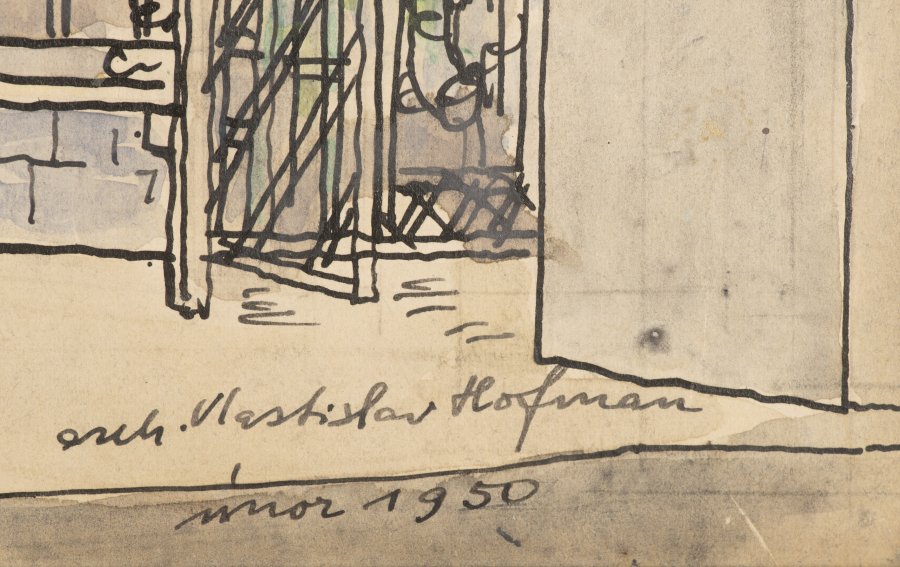 arch. Vlastislav Hofman
únor 1950